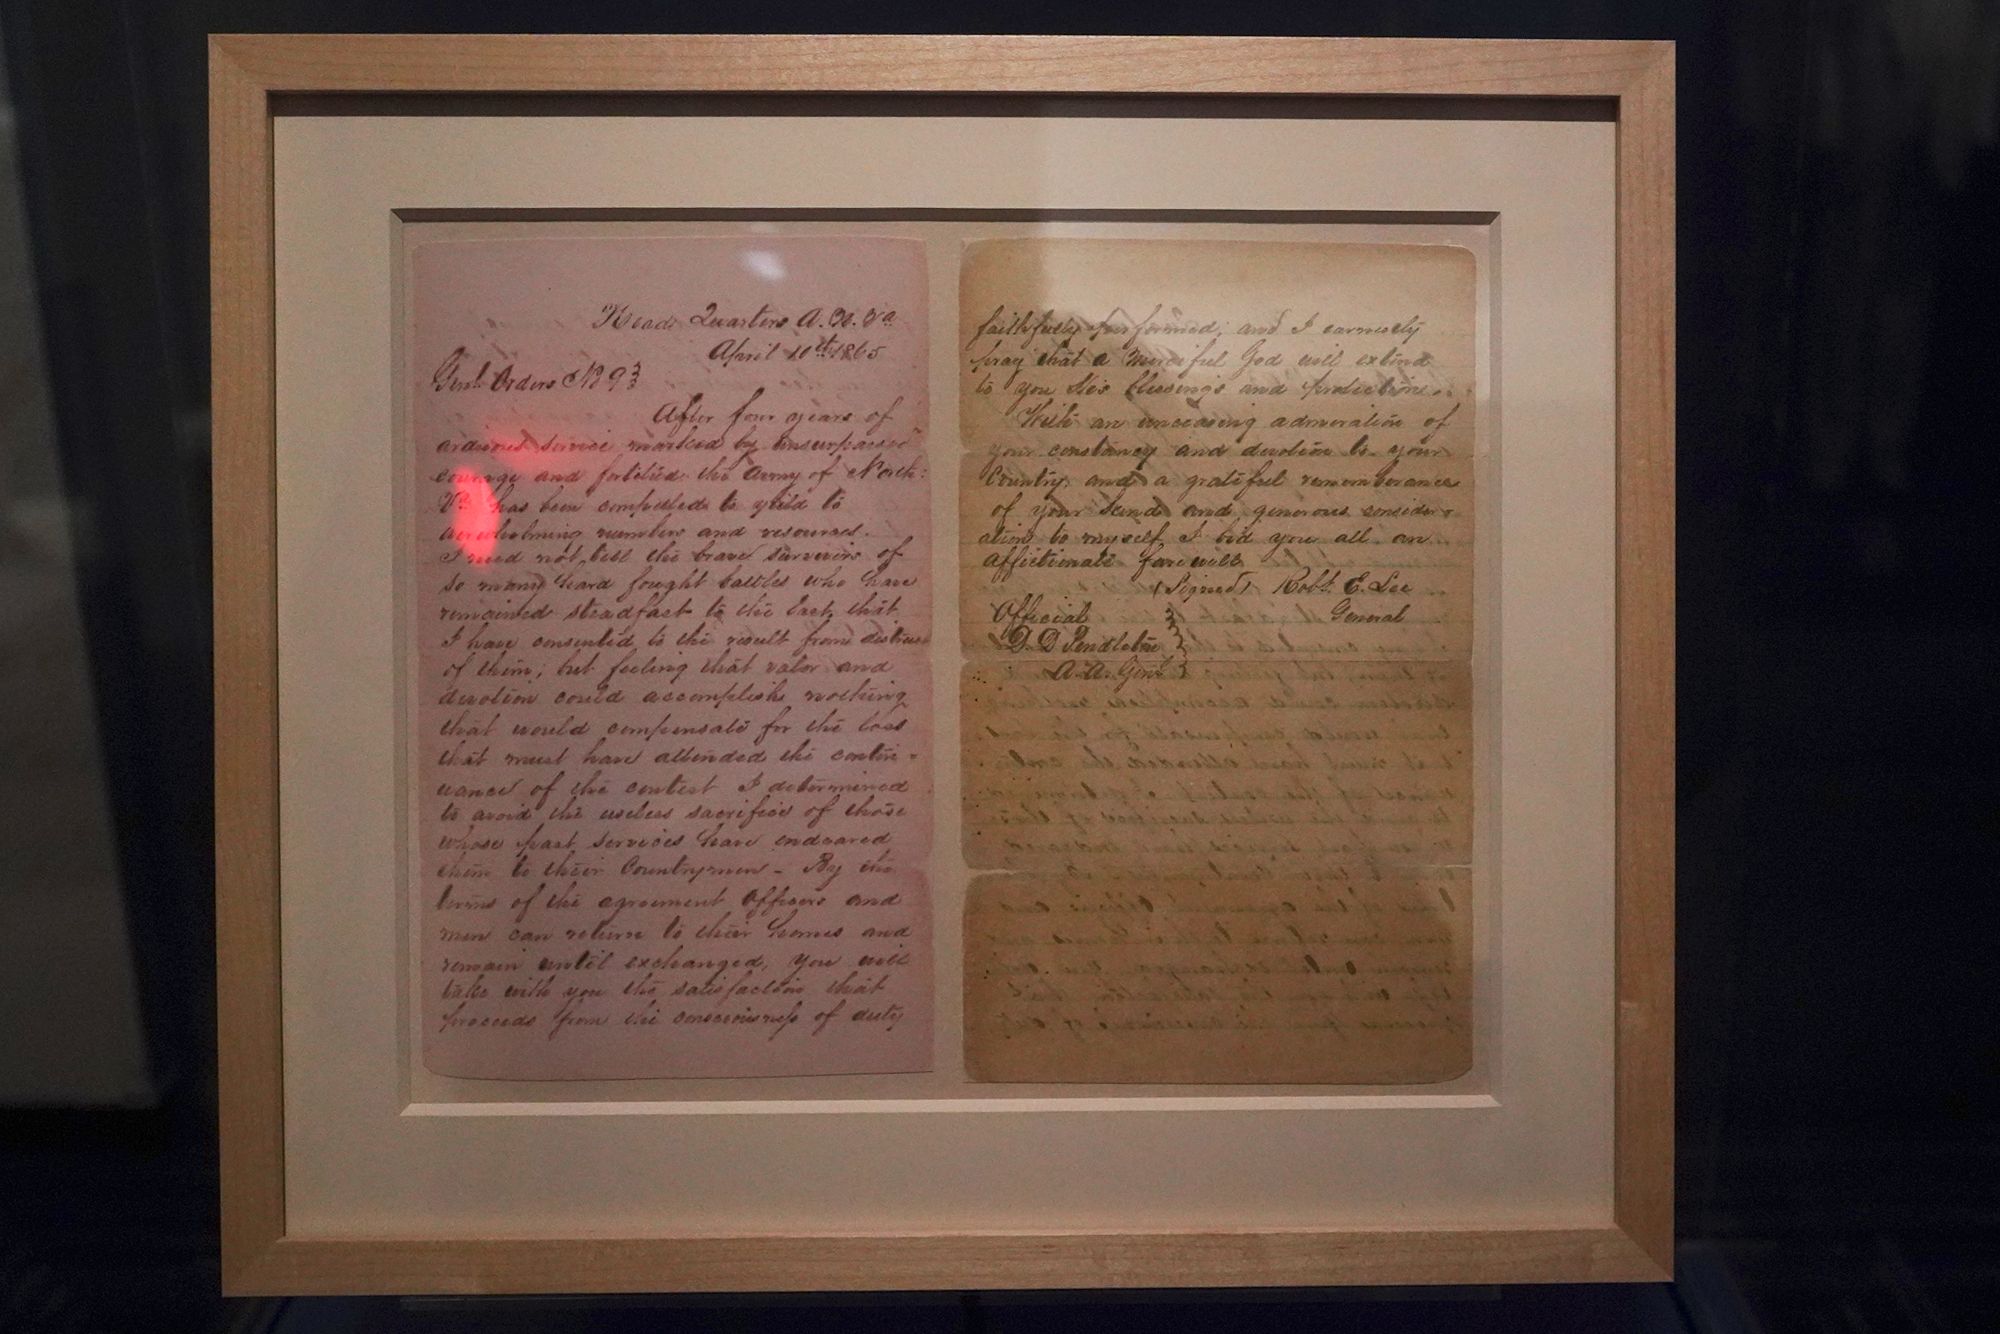 Head Quarters A. N. Va
April 10th 1865
Genl Orders No 93
After four years of
arduous service marked by unsurpassed
courage and fortitud the Army of North:
Va has been compelled to yield to
overwhelming numbers and resources.
I need not tell the brave survivors of
so many hard fought battles who have
remained steadfast to the last, that
I have consented to the result from distrust
of them; but feeling that valor and
devotion could accomplish nothing
that would compensate for the loss
that must have attended the contin-
uance of the contest I determined
to avoid the useless sacrifice of those
whose past services have endeared
them to their Countrymen - By the
terms of the agreement Officers and
men can return to their homes and
remain until exchanged, You will
take with you the satisfaction that
proceeds from the consciousness of duty
faithfully performed; and I earnestly
pray that a Merciful God will extend
to you His blessings and protection.
With an unceasing admiration of
your constancy and devotion to your
Country, and a grateful remembrance
of your kind and generous consider-
ation to myself I bid you all an
affectionate farewell
(Signed) Robt. E. Lee
General
Official
D. D Pendleton
A. A. Genl